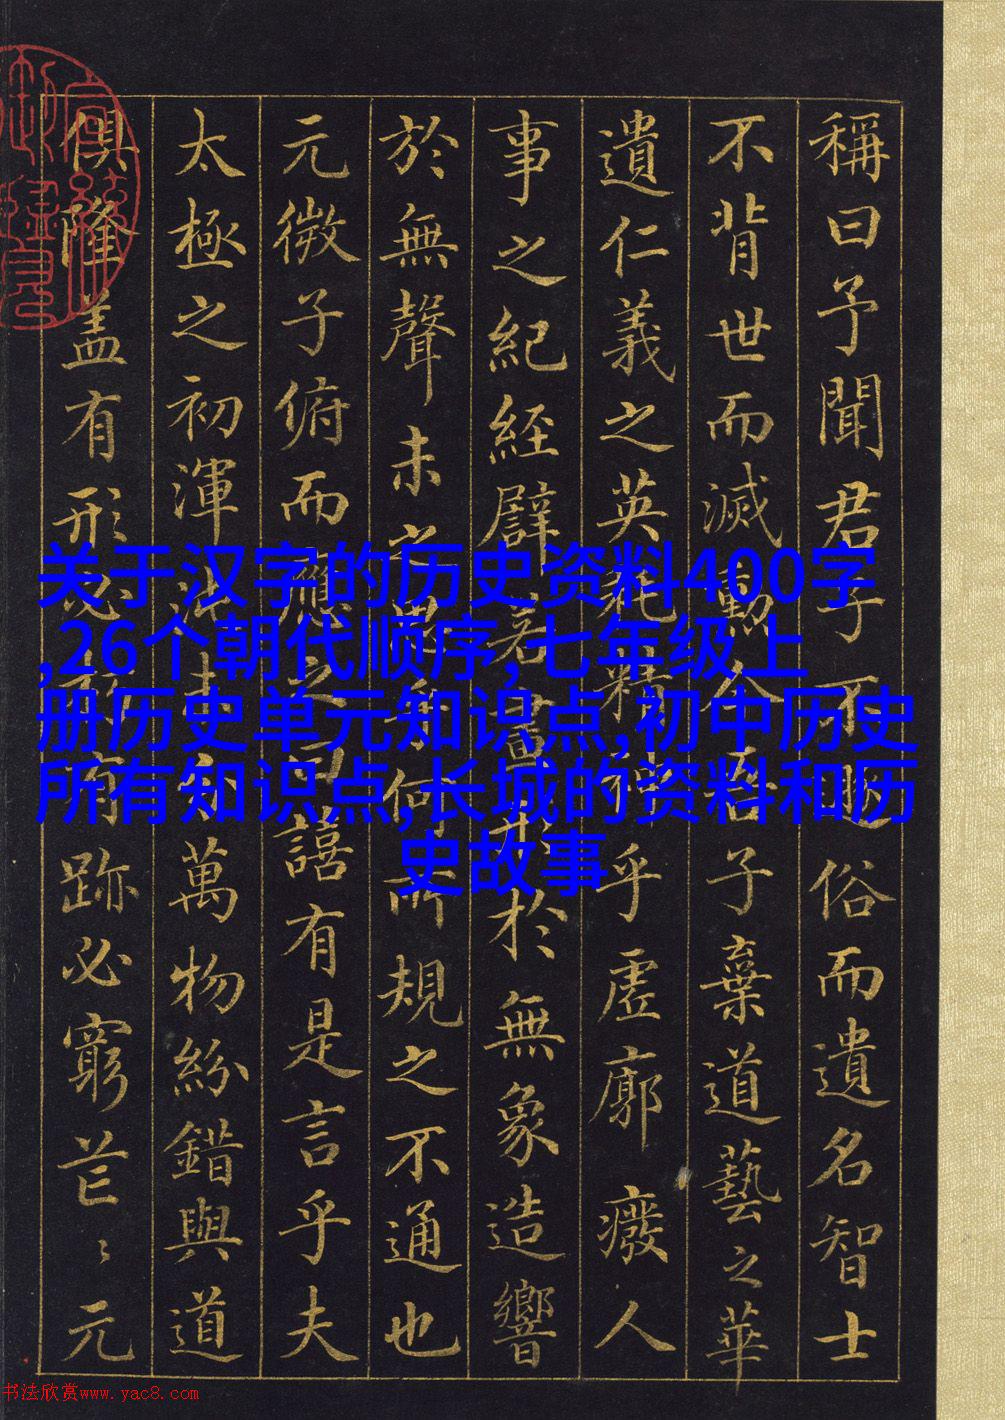 稱曰予聞君子不俗而遺名智士
不背世而滅勳今吾子棄道藝之華
遺仁義之英秏精神乎虛廓癈人
事之紀經譬若畫形於無象造響
於無聲未嘗何所規之不通也
元微子俯而應之曰譆有是言乎夫
太極之初渾沌未萬物紛錯與道
俱隆盖有形必朽有跡必窮芒〻元
关于汉字的历史资料400字
,26个朝代顺序,七年级上
册历史单元知识点,初中历史
所有知识点,长城的资料和历
史故事
书法欣赏www.yac8.com